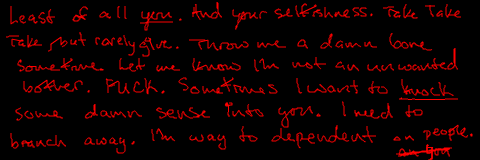 Least of all you. And your selfishness. Take Take
Take, but rarely give. Throw me a damn bone
sometime. Let me know I'm not an unwanted
bother. FUCK. Sometimes I want to knock
some damn sense into you. I need to
branch away. I'm way to dependent on people.
on you